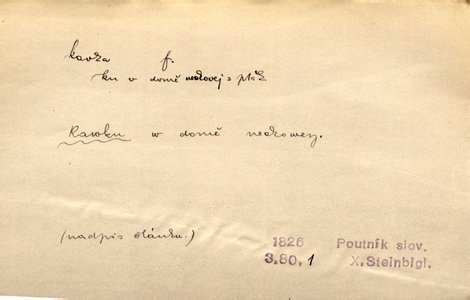 kavka f.
ku v domě nechovej : pták
Kawku w domě nechowey.
(nadpis článku.)
1826 Poutník slov.
3.80,1 X.Steinbigl.